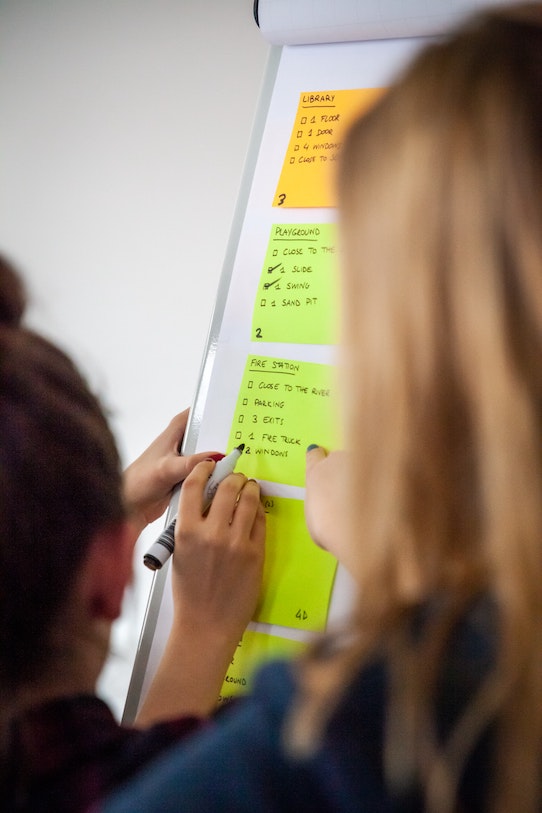 LIBRARY
1 FLOOR
1 DOOR
4 WINDOWS
CLOSE TO
3
PLAYGROUND
CLOSE TO THE
1 SLIDE
1 SWING
1 SAND PIT
2
FIRE STATION
CLOSE TO THE RIVER
PARKING
3 EXITS
1 FIRE TRUCK
2 WINDOWS
4D